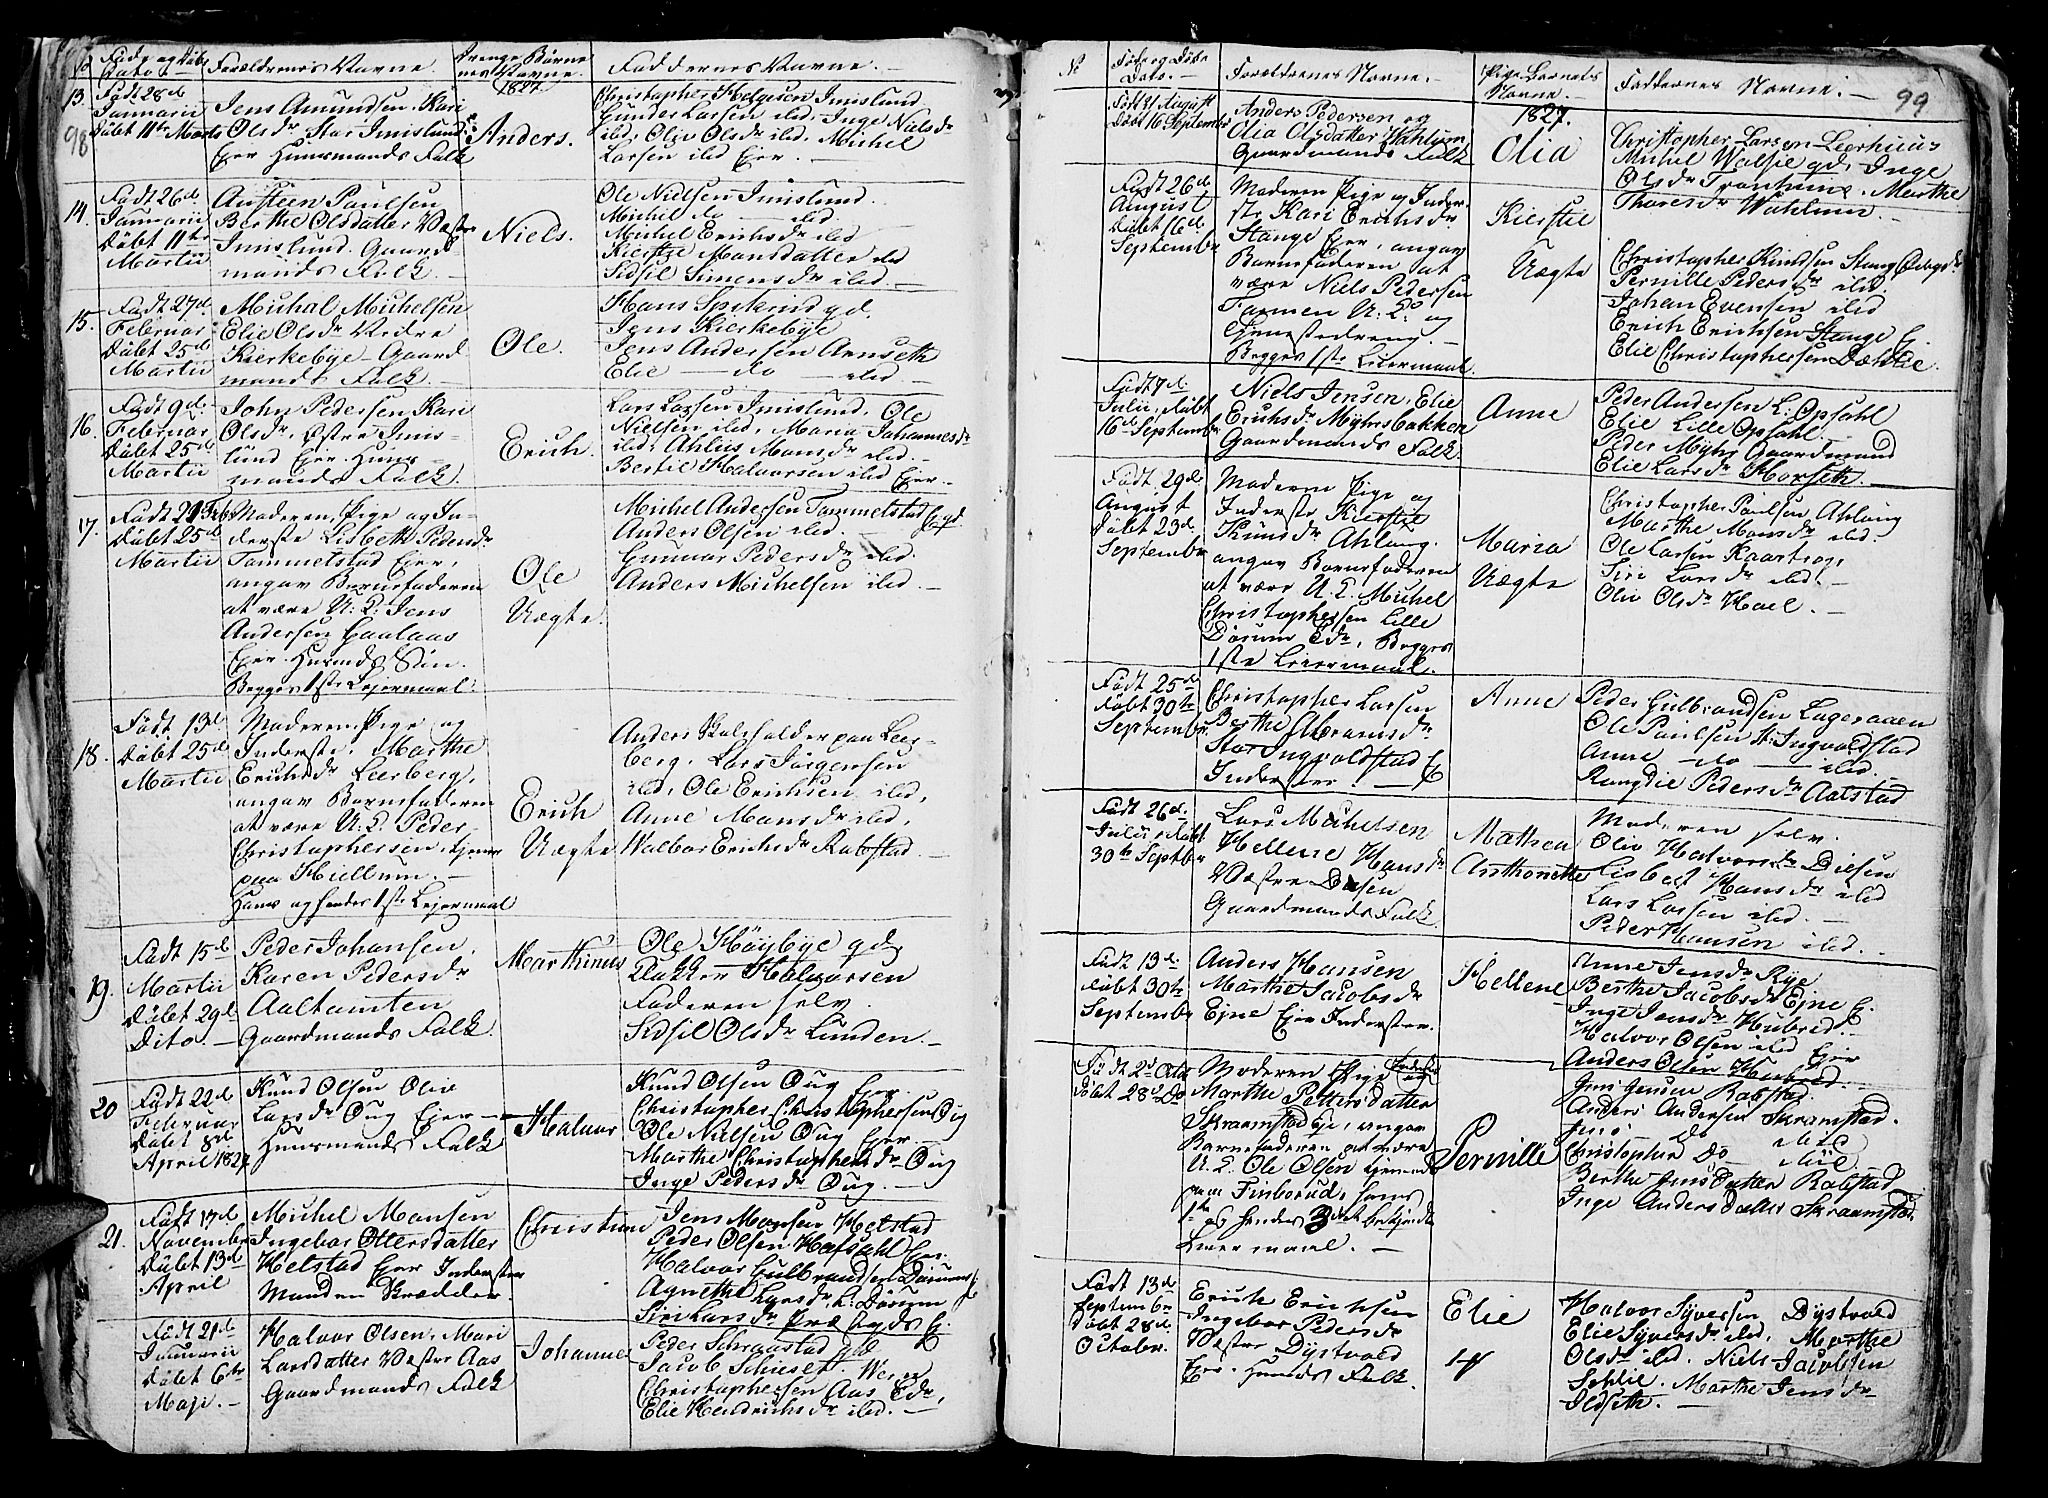 98
No
Føds og Døbs
Dato
Forældrenes Navne.
Drenge Børne
nes Navne.
1827
Faddernes Navne.
13.
Født 28d
Januarii
Døbt 11te Marts
Jens Amundsen, Kari
Olsdr Stor Imislund
Eier Huusmands Folk
Anders.
Christopher Helgesen Imislund
Gunder Larsen ibd, Inge Nielsdr
ibd, Oliv Olsdr ibd, Michel
Larsen ibd Eier.
14.
Født 26d
Januarii
Døbt 11te
Martii
Austeen Paulsen
Berthe Olsdatter Vestre
Imislund. Gaard-
mands Folk.
Niels.
Ole Nielsen Imislund
Michel do ibd
Michel Erichsdr ibd
Kierstie Mansdatter ibd
Sidsil Simensdr ibd.
15.
Født 27d
Februar
Døbt 25d
Martii
Michal Michelsen
Elie Olsdr Nedre
Kierkebye Gaard
mands Folk
Ole.
Hans Spikrud gd.
Jens Kierkebye
Jens Andersen Arnseth
Elie do ibd.
16.
Født 9d
Februar
Døbt 25d
Martii
John Pedersen Kari
Olsdr, Østre Imis-
lund Eier Huus-
mands Folk.
Erich.
Lars Larsen Imislund, Ole
Nielsen ibd, Maria Johannesdr
ibd, Ahlis Mansdr ibd.
Bertil Halvorsen ibd Eier.
17.
Døbt 25d
Martii
Moderen, Pige og In-
derste Lisbeth Pedersdr
Tommelstad Eier,
angav Barnefaderen
at være U: K: Jens
Andersen Caalaas
Eier Huusmds Søn.
Begges 1ste Lejermaal.
Ole
Uægte.
Michel Andersen Tommelstad
Anders Olsen ibd.
Gunnor Pedersdr ibd.
Anders Michelsen ibd.
18.
Født 13d
Døbt 25d
Martii
Moderen Pige og
Inderste, Marthe
Erichsdr Leerberg,
angav Barnefaderen
at være U. K. Peder
Christophersen, tjener
paa Hiellum.
Hans og hendes 1ste Lejermaal
Erich
Uægte
Anders Skoleholder paa Leer-
berg, Lars Jørgensen
ibd, Ole Erichsen ibd,
Anne Mansdr ibd,
Walbor Erichsdr Robstad.
19.
Født 15d
Martii
Døbt 29d
Dito.
Peder Johansen,
Karen Pedersdr
Aaltamten
Gaardmands Folk.
Marthinus
Ole Høybye gd,
Halvorsen
Faderen selv.
Sidsil Olsdr Lunden.
20
Født 22d
Februar
Døbt 8d
April 1827
Knud Olsen Oliv
Larsdr Oug Eier
Huusmands Folk
Halvor
Knud Olsen Oug Eier.
Christopher Christophersen Oug
Ole Nielsen Oug Eier.
Marthe Christophersdr Oug
Inge Pedersdr Oug.
21.
Født 17d
Novembr
Døbt 13d
April
Michel Mansen
Ingebor Ottersdatter
Helstad Eier Inderster
Manden Skrædder.
Christian
Jens Mansen Helstad
Peder Olsen Hafsahl Eier
Halvor Gulbrandsen Dørum
Agnethe Larsdr L: Dørum
Siri Larsdr
Født 21d
Januarii
Døbt 6te
Maji.
Halvor Olsen, Mari
Larsdatter Vestre Aas
Gaardmands Folk
Johannes
Peder Schraastad gd
Jacob
Christophersen Aas Edr,
Elie Hendrichsdr ibd.
99
No
Føds og Døbs
Dato.
Forældrenes Navne.
Pige Barnets
Navne.
1827.
Faddernes Navne.
Født 21 August
Døbt 16 September
Anders Pedersen og
Olia Olsdatter Wahlum
Gaardmands Folk
Olia
Christopher Larsen Leerhuus
Michel Wolsie gd, Inge
Olsdr Tronhuus, Marthe
Thoresdr Wahlum.
Født 26d
August
Døbt 16d
Septembr
Moderen Pige og Inder-
ste Kari Erichsdr
Stange Eier, angav
Barnefaderen at
være Niels Pedersen
U. K. og
Tjenestedreng.
Begges 1ste Leiermaal.
Kierstie
Uægte
Christopher Stang Ødegdn
Pernille Pedersdr ibd.
Johan Evensen ibd
Erich Erichsen Stange E.
Elie Christophersen
Født 7d
Julii, Døbt
16d Septembr
Niels Jensen, Elie
Erichsdr Myhrsbakken
Gaardmands Folk.
Anne
Peder Andersen L: Opsahl
Elie Lille Opsahl.
Peder Myhr Gaardmand
Elie Larsdr Horseth.
Født 29d
August
Døbt 23d
Septembr
Moderen Pige og
Inderste Kierstie
Knudsdr Ahlang.
angav Barnefaderen
at være U. K. Michel
Christophersen Lille
Dørum Edr, Begges
1ste Leiermaal.
Maria
Uægte
Christopher Paulsen Ahlang
Marthe Monsdr ibd.
Ole Larsen Kaartrog,
Siri Larsdr ibd.
Oliv Olsdr Hoel.
Født 25d
Døbt 30te
Septembr
Christopher Larsen
Berthe Abramsdr
Stor Ingvoldstad E
Inderster.
Anne
Peder Gulbrandsen Lageraaen
Ole Paulsen St: Ingvoldstad
Anne do ibd.
Rangdie Pedersdr Aalstad
Født 26d
Julii, Døbt
30te Septbr
Lars Michelsen
Hellene Hansdr
Vestre Diesen
Gaardmands Folk.
Mathea
Anthonette
Moderen selv.
Oliv Halvorsdr Diesen
Lisbet Hansdr ibd
Lars Larsen ibd.
Peder Hansen ibd.
Født 13d
Døbt 30te
Septembr
Anders Hansen
Marthe Jacobsdr
Ejne Eier Inderster.
Hellene
Anne Jensdr Rye
Berthe Jacobsdr Ejne E.
Inge Jensdr Hubred.
Halvor Olsen ibd Eier
Anders Olsen Hubred.
Født 2d Octbr
Døbt 28d Do
Moderen Pige Inderste
Marthe Pettersdatter
Skraamstad Eje, angav
Barnefaderen at være
U. K. Ole Olsen tjenende
paa Finborud, hans
1te og hendes 3die bekjendte
Leiermaal.
Pernille
Jens Jensen Robstad.
Anders Andersen Skraamstad.
Jens do ibid
Christopher Do ibid.
Berthe Jensdatter Robstad
Inge Andersdatter Skraamstad.
Født 13d
Septembr
Døbt 28d
October.
Erich Erichsen
Ingebor Pedersdr
Vester Dystvold
Eier. Huusmds Folk.
Elie
Halvor Syversen Dystvold
Elie Syversdr ibd. Marthe
Olsdr ibd. Niels Jacobsen
Sehlie. Marthe Jensdr
Ildseth.